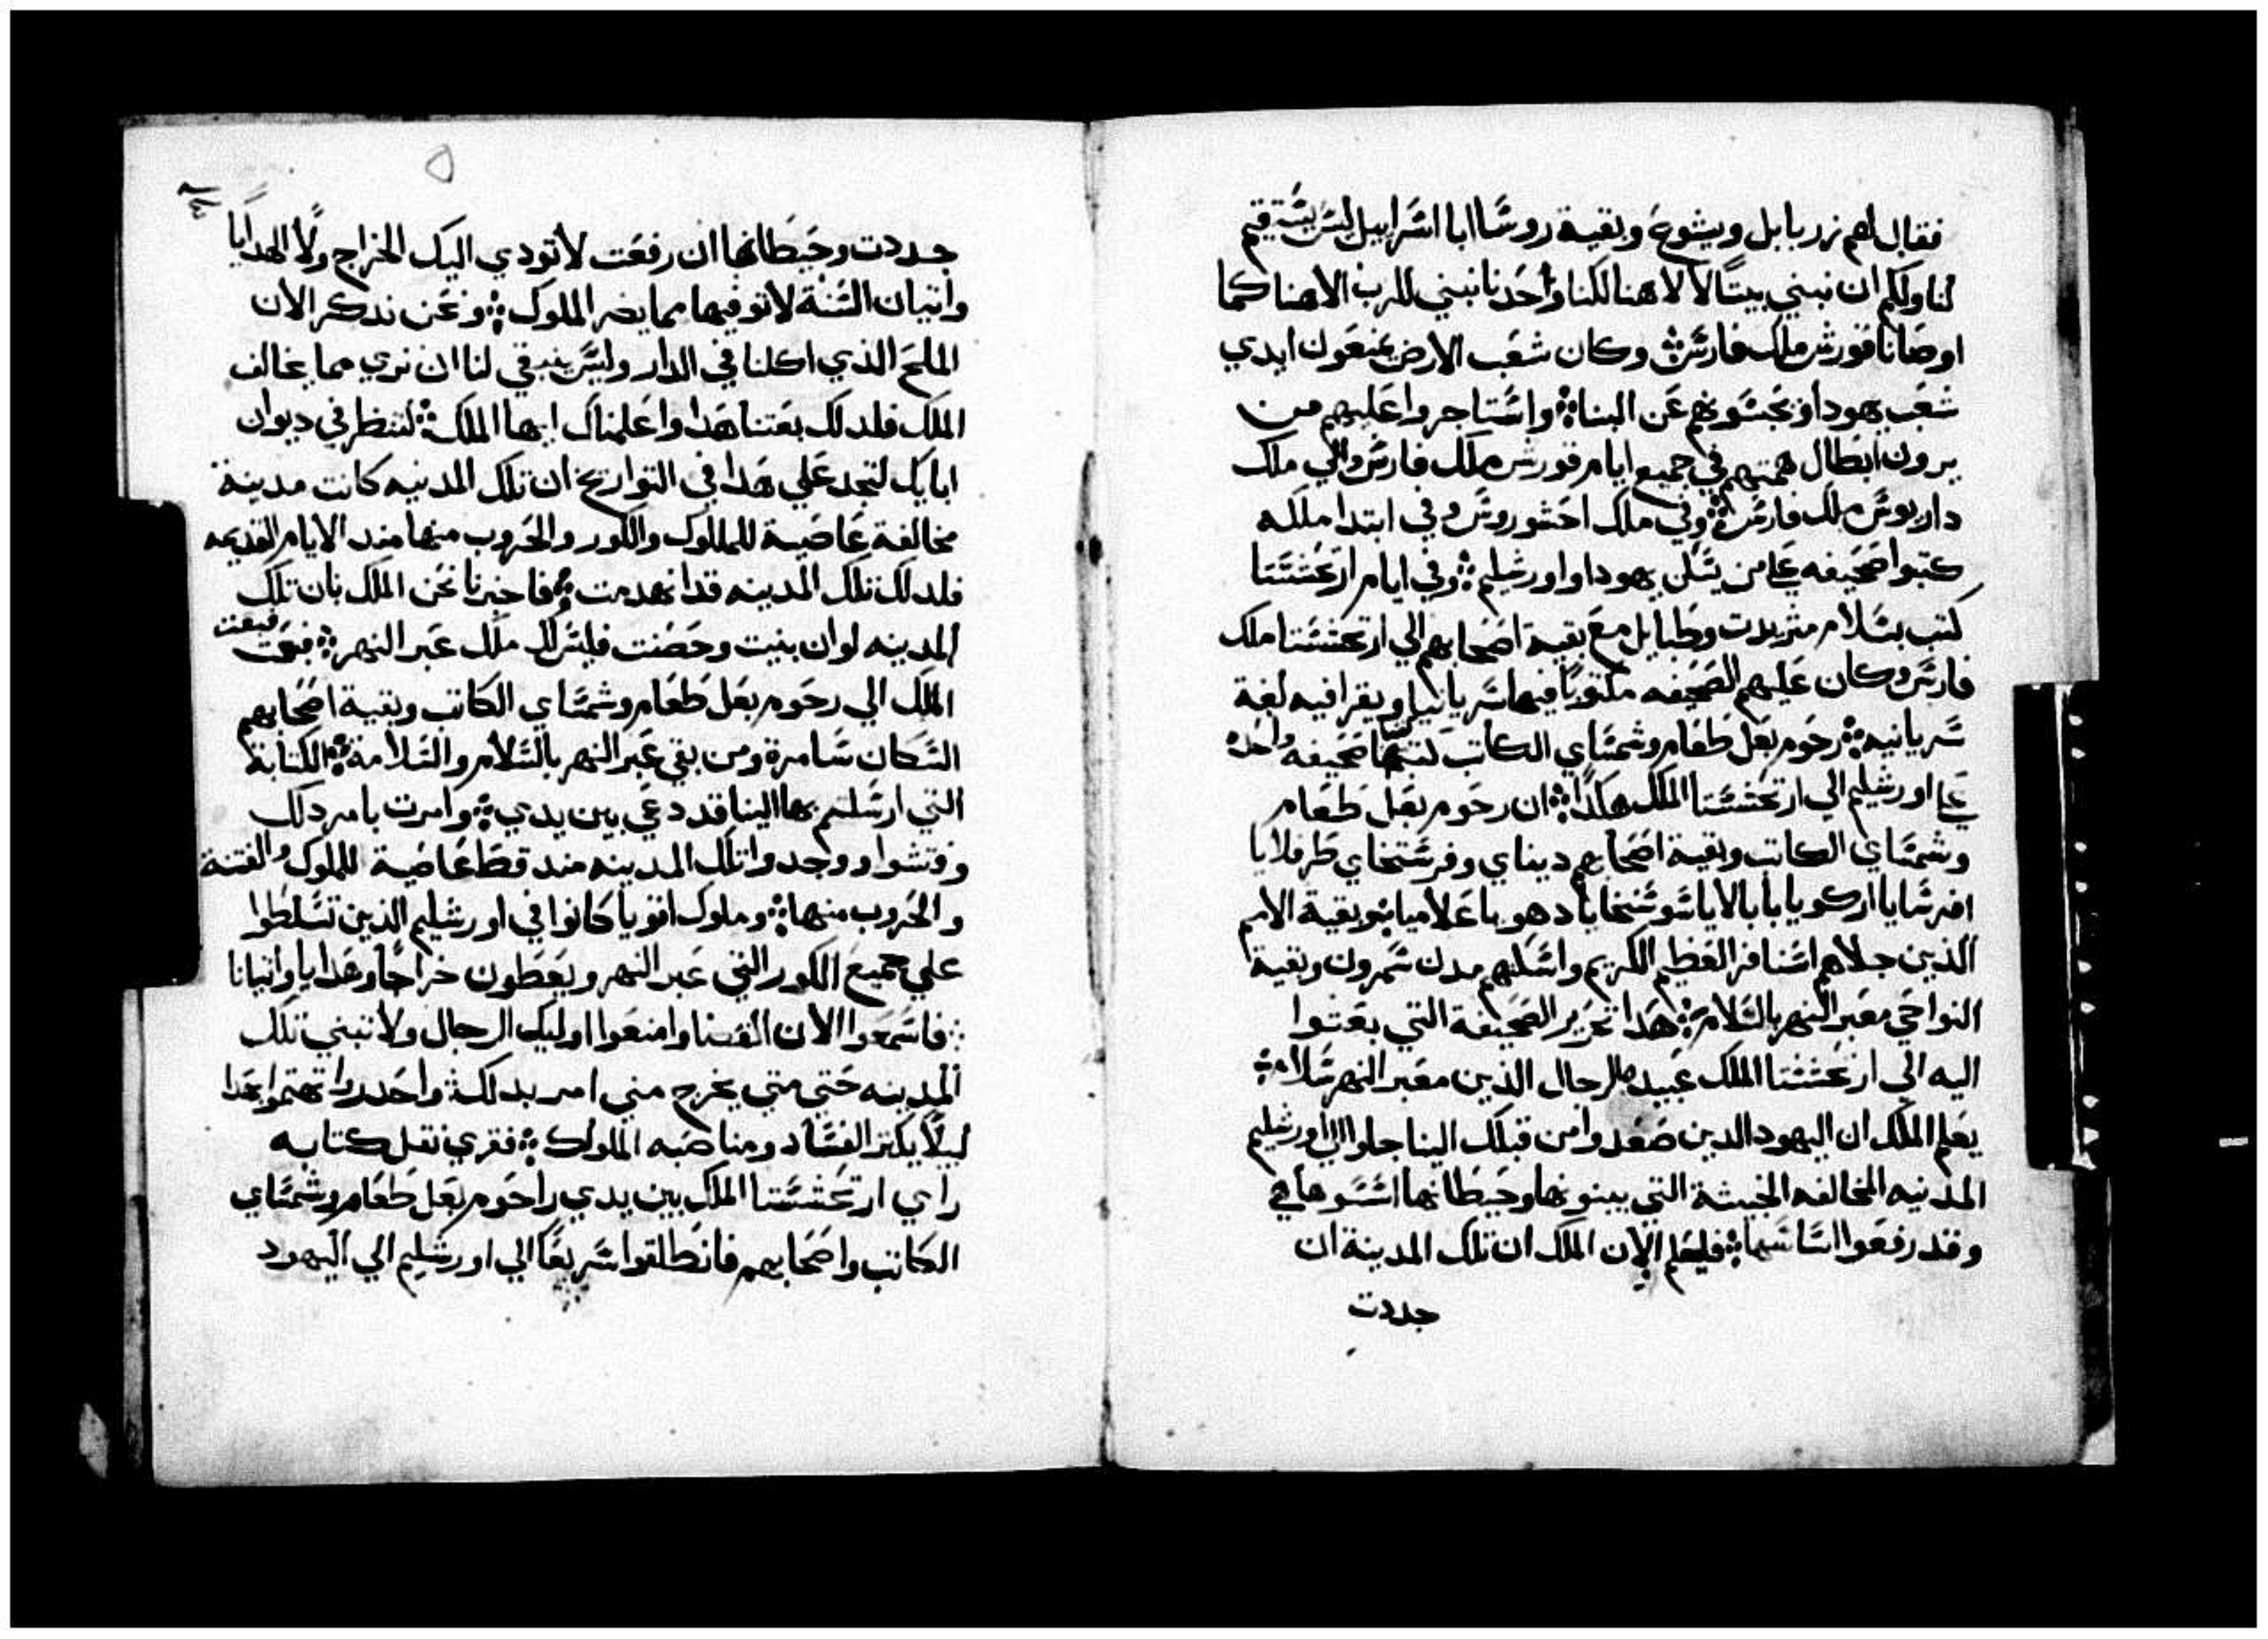 فقال لهم زربابل ويشوع وبقية روسا ابا اسرايل ليس يستقيم
لنا ولكم ان نبني بيتًا لالاهنا لكنا وأحدنا نبني للرب الاهنا كما
اوصانا قورش ملك فارس ۞ وكان شعب الارض يمنعون ايدي
شعب يهودا ويحبسونهم عن البنا ۞ واستاجروا عليهم من
يرون ابطال همتهم في جميع ايام قورش ملك فارس والي ملك
داريوس ملك فارس ۞ وفي ملك احشوروش وفي ابتدا ملكه
كتبوا صحيفه علي من يسكن يهودا واورشليم ۞ وفي ايام ارتحششتا
كتب بسلام متريدت وطبايل مع بقية اصحابهم الي ارتحششتا ملك
فارس وكان عليهم الصحيفه مكتوبًا فيها سريانيا ويقرا فيه لغة
سريانيه ۞ رحوم بعل طعام وشمساي الكاتب كتبا صحيفه واحده
علي اورشليم الي ارتحششتا الملك هكذا ۞ ان رحوم بعل طعام
وشمساي الكاتب وبقية اصحابهم ديناي وفرستخاي طرفلايا
افرسايا اركويا بابالايا شوشنخايا دهويا علاميا ۞ وبقية الامم
الذين جلاهم اسنافر العظيم الكريم واسكنهم مدن سمرون وبقية
النواحي معبر النهر بالسلام ۞ هذا تحرير الصحيفة التي بعتوا
اليه الي ارتحششتا الملك عبيده الرجال الذين معبر النهر سلام ۞
يعلم الملك ان اليهود الدين صعدوا من قبلك الينا جلوا الي اورشليم
المدنيه المخالفه الخبيثة التي يبنونها وحيطانها اسسوها هي
وقد رفعوا اساسها ۞ فليعلم الان الملك ان تلك المدينة ان
جددت
جددت وحيطانها ان رفعت لا تودي اليك الخراج ولا الهدايا
واتيان السنة لا توفيها مما يضر الملوك ۞ ونحن ندكر الان
الملح الذي اكلنا في الدار وليس ينبقي لنا ان نري مما يخالف
الملك فلدلك بعتنا هدا واعلمناك ايها الملك ۞ لتنظر في ديوان
ابايك لتجد علي هدا في التواريخ ان تلك المدنيه كانت مدينة
مخالفة عاصية للملوك والكور والحروب منها مند الايام القديمه
فلدلك تلك المدينه قد انهدمت ۞ فاخبرنا نحن الملك بان تلك
المدينه لو ان بنيت وحصنت فليس لك ملك عبر النهر ۞ فبعت
فبعت
الملك الي رحوم بعل طعام وشمساي الكاتب وبقية اصحابهم
السكان سامرة ومن بقي عبر النهر بالسلام والسلامة ۞ الكتابة
التي ارسلتم بها الينا قد دعي بين يدي ۞ وامرت بامر دلك
وفتشوا ووجدوا تلك المدينه مند قط عاصية للملوك والفتنة
والحروب منها ۞ وملوك اقويا كانوا في اورشليم الذين تسلطوا
علي جميع الكور التي عبر النهر ويعطون خراجًا وهدايا واتيانا
۞ فاسمعوا الان القضا وامنعوا اوليك الرجال ولا تبني تلك
المدينه حتي متي يخرج مني امر بدلك ۞ واحدروا تهتموا بهدا
ليلا يكثر الفساد ومناصبه الملوك ۞ فقري نقل كتابه
راي ارتحششتا الملك بين يدي راحوم بعل طعام وشمساي
الكاتب واصحابهم فانطلقوا سريعًا الي اورشليم الي اليهود